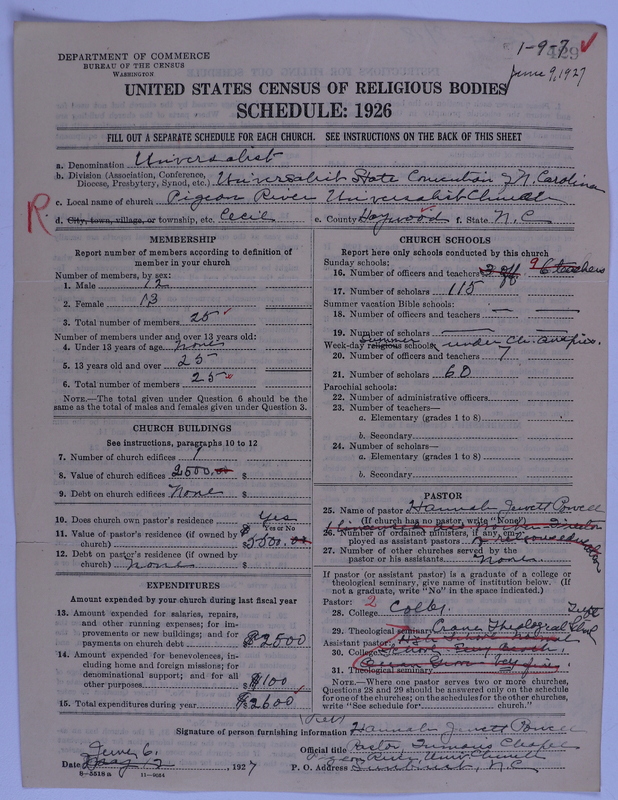 1-9-7 429
June 9, 1927
DEPARTMENT OF COMMERCE
BUREAU OF THE CENSUS
WASHINGTON
UNITED STATES CENSUS OF RELIGIOUS BODIES
SCHEDULE: 1926
FILL OUT A SEPARATE SCHEDULE FOR EACH CHURCH. SEE INSTRUCTIONS ON THE BACK OF THIS SHEET
a. Denomination Universalist
b. Division (Association, Conference,
Diocese, Presbytery, Synod, etc.) Universalist State Convention of N. Carolina
c. Local name of church Pigeon River Universalist Church
R
d. City, town, village, or township, etc. Cecil e. County Haywood f. State N.C.
MEMBERSHIP
Report number of members according to definition of
member in your church
Number of members, by sex:
1. Male 12
2. Female 13
3. Total number of members 25
Number of members under and over 13 years old:
4. Under 13 years of age None
5. 13 years old and over 25
6. Total number of members 25
NOTE.—The total given under Question 6 should be
same as the total of males and females given under Question 3.
CHURCH BUILDINGS
See instructions, paragraphs 10 to 12
7. Number of church edifices 1
8. Value of church edifices 2500.00 $
9. Debt on church edifices None $
10. Does church own pastor's residence Yes
Yes or No
11. Value of pastor's residence (if owned by
church) $5500.00
12. Debt on pastor's residence (if owned by
church) None $
EXPENDITURES
Amount expended by your church during last fiscal year
13. Amount expended for salaries, repairs,
and other running expenses; for im-
provements or new buildings; and for
payments on church debt $2500
14. Amount expended for benevolences, in-
cluding home and foreign missions; for
denominational support; and for all
other purposes $100
15. Total expenditures during year $2600
CHURCH SCHOOLS
Report here only schools conducted by this church
Sunday schools:
16. Number of officers and teachers 2 off 9 6 teachers
17. Number of scholars 115
Summer vacation Bible schools:
18. Number of officers and teachers
19. Number of scholars
Summer under Ch. auspices.
Week-day religious schools:
20. Number of officers and teachers 7
21. Number of scholars 60
Parochial schools:
22. Number of administrative officers
23. Number of teachers—
a. Elementary (grades 1 to 8)
b. Secondary
24. Number of scholars—
a. Elementary (grades 1 to 8)
b. Secondary
PASTOR
25. Name of pastor Hannah Jewett Powell
(If church has no pastor, write "None")
26. Number of ordained ministers, if any, em-
ployed as assistant pastors
27. Number of other churches served by the
pastor or his assistants None
If pastor (or assistant pastor) is a graduate of a college or
theological seminary, give name of institution below. (If
not a graduate, write "No" in the space indicated.)
Pastor: 2
28. College Colby.
29. Theological seminary Crane Theological School Tufts
Assistant pastor:
30. College
31. Theological seminary
NOTE.—Where one pastor serves two or more churches,
Questions 28 and 29 should be answered only on the schedule
for one of the churches; on the schedules for the other churches,
write "See schedule for church."
Signature of person furnishing information (Rev) Hannah Jewett Powell
Official title Pastor Inmans Chapel
Pigeon River Univ. Church
Date June 6. May 12 1927 P. O. Address Sunburst, N.C.
8-5518a 11-9034